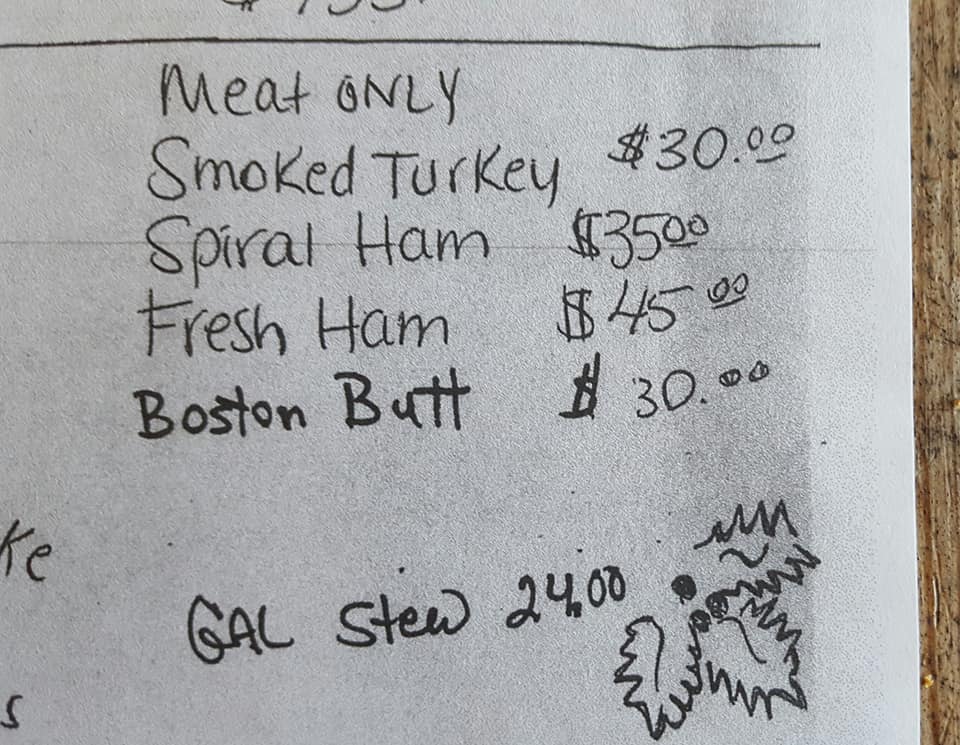 Meat ONLY
Smoked Turkey $30.00
Spiral Ham $3500
Fresh Ham $45 00
Boston Butt $ 30.00
Ke
GAL Stew 24.00
s